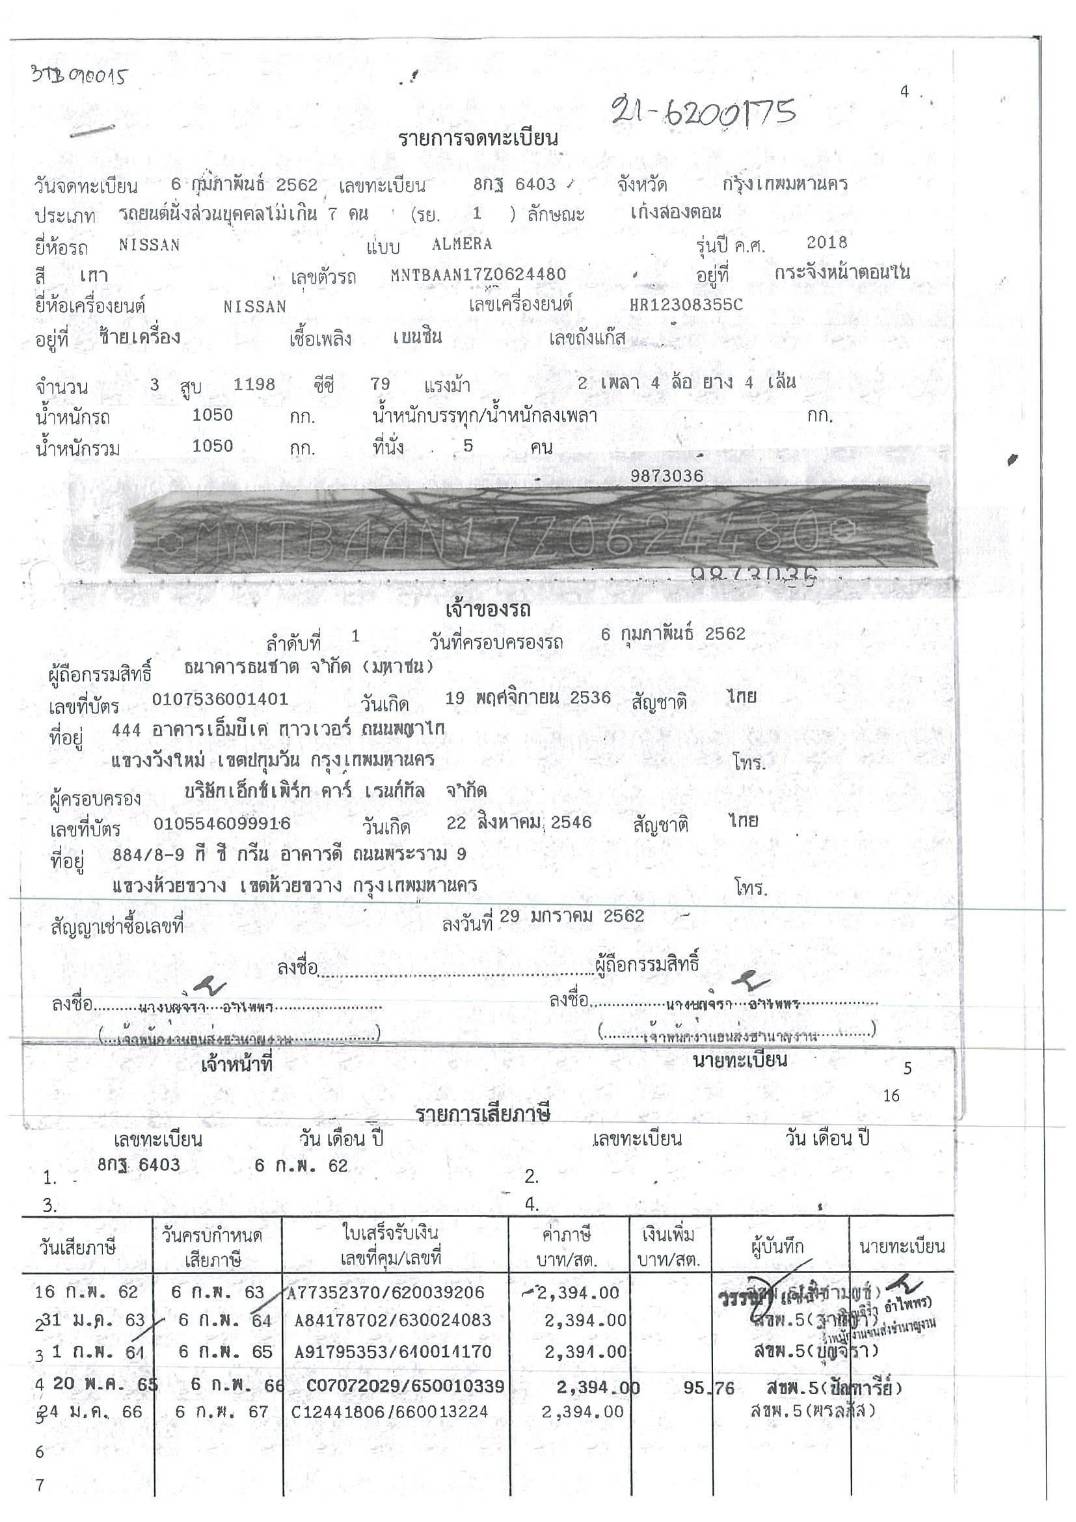 3TB090015
4
21-6200175
รายการจดทะเบียน
วันจดทะเบียน 6 กุมภาพันธ์ 2562 เลขทะเบียน 8กฐ 6403 จังหวัด กรุงเทพมหานคร
ประเภท รถยนต์นั่งส่วนบุคคลไม่เกิน 7 คน (รย. 1 ) ลักษณะ เก๋งสองตอน
ยี่ห้อรถ NISSAN แบบ ALMERA รุ่นปี ค.ศ. 2018
สี เทา เลขตัวรถ MNTBAAN17Z0624480 อยู่ที่ กระจังหน้าตอนใน
ยี่ห้อเครื่องยนต์ NISSAN เลขเครื่องยนต์ HR12308355C
อยู่ที่ ซ้ายเครื่อง เชื้อเพลิง เบนซิน เลขถังแก๊ส
จำนวน 3 สูบ 1198 ซีซี 79 แรงม้า 2 เพลา 4 ล้อ ยาง 4 เส้น
น้ำหนักรถ 1050 กก. น้ำหนักบรรทุก/น้ำหนักลงเพลา กก.
น้ำหนักรวม 1050 กก. ที่นั่ง 5 คน
9873036
MNTBAAN17Z0624480
9873036
เจ้าของรถ
ลำดับที่ 1 วันที่ครอบครองรถ 6 กุมภาพันธ์ 2562
ผู้ถือกรรมสิทธิ์ ธนาคารธนชาต จำกัด (มหาชน)
เลขที่บัตร 0107536001401 วันเกิด 19 พฤศจิกายน 2536 สัญชาติ ไทย
ที่อยู่ 444 อาคารเอ็มบีเค ทาวเวอร์ ถนนพญาไท
แขวงวังใหม่ เขตปทุมวัน กรุงเทพมหานคร โทร.
ผู้ครอบครอง บริษัทเอ็กซ์เพิร์ท คาร์ เรนท์ทัล จำกัด
เลขที่บัตร 0105546099916 วันเกิด 22 สิงหาคม 2546 สัญชาติ ไทย
ที่อยู่ 884/8-9 ที ซี กรีน อาคารดี ถนนพระราม 9
แขวงห้วยขวาง เขตห้วยขวาง กรุงเทพมหานคร โทร.
สัญญาเช่าซื้อเลขที่ ลงวันที่ 29 มกราคม 2562
ลงชื่อ ผู้ถือกรรมสิทธิ์
ลงชื่อ นางบุญจิรา อำไพพร ลงชื่อ นางบุญจิรา อำไพพร
(เจ้าพนักงานขนส่งชำนาญงาน) (เจ้าพนักงานขนส่งชำนาญงาน)
เจ้าหน้าที่ นายทะเบียน 5
16
รายการเสียภาษี
เลขทะเบียน วัน เดือน ปี เลขทะเบียน วัน เดือน ปี
1. 8กฐ 6403 6 ก.พ. 62 2.
3. 4.
วันเสียภาษี วันครบกำหนดเสียภาษี ใบเสร็จรับเงิน เลขที่คุม/เลขที่ ค่าภาษี บาท/สต. เงินเพิ่ม บาท/สต. ผู้บันทึก นายทะเบียน
1 6 ก.พ. 62 6 ก.พ. 63 A77352370/620039206 2,394.00
2 31 ม.ค. 63 6 ก.พ. 64 A84178702/630024083 2,394.00 สขพ.5
3 1 ก.พ. 64 6 ก.พ. 65 A91795353/640014170 2,394.00 สขพ.5(บุญจิรา)
4 20 พ.ค. 65 6 ก.พ. 66 C07072029/650010339 2,394.00 95.76 สขพ.5(ปัณฑารีย์)
5 24 ม.ค. 66 6 ก.พ. 67 C12441806/660013224 2,394.00 สขพ.5(พรลภัส)
6
7